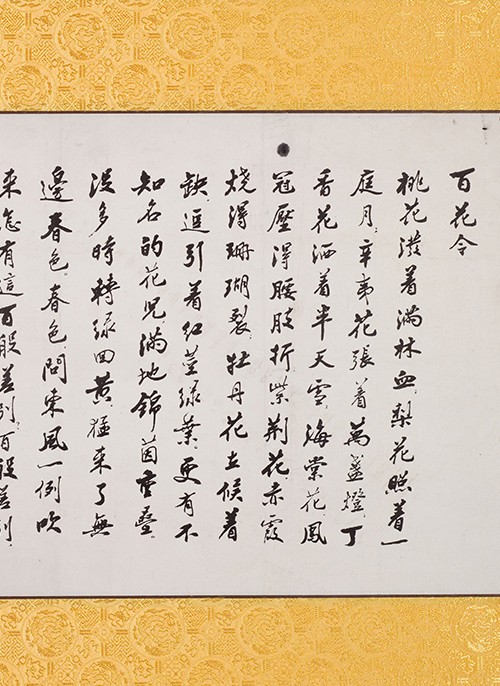 百花令
桃花潑着滿林血梨花照着一
庭月辛夷花張着萬盞燈丁
香花洒着半天雪海棠花鳳
冠壓得腰肢折紫荆花赤霞
燒得珊瑚裂牡丹花立候着
缺逗引着红莖绿葉更有不
知名的花児滿地錦茵重疊
没多時轉緑回黄猛来了無
邊春色春色問東風一例吹
来怎有這百般差别百般差别